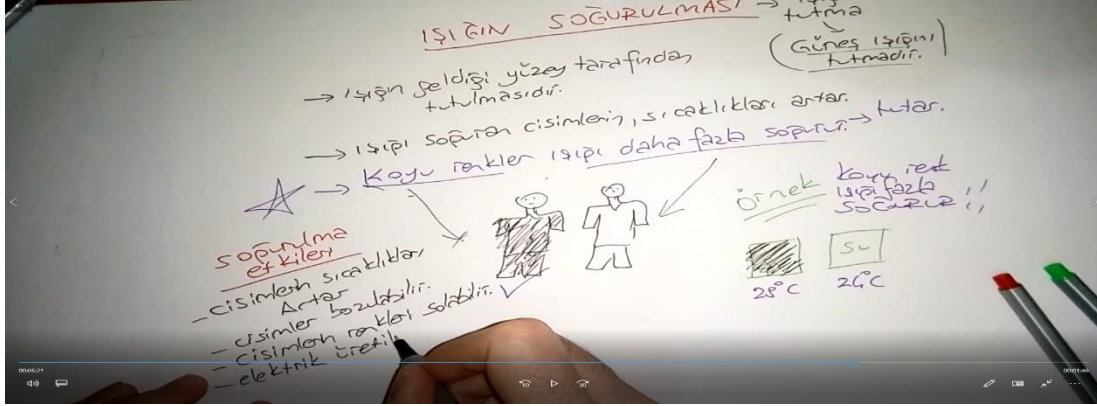 IŞIĞIN SOĞURULMASI →
tutma
(Güneş ışığını
tutmadır.)
→ ışığın geldiği yüzey tarafından
tutulmasıdır.
→ ışığı soğuran cisimlerin, sıcaklıkları artar.
→ Koyu renkler ışığı daha fazla soğurur. → tutar.
örnek
koyu renk
ışığı fazla
SOĞURUR !!
SU
28°C
24°C
soğurulma
etkileri
- cisimlerin sıcaklıkları
Artar
- cisimler bozulabilir.
- cisimlerin renkleri solabilir.
- elektrik üretil
00:06:21
00:01:46
10
30